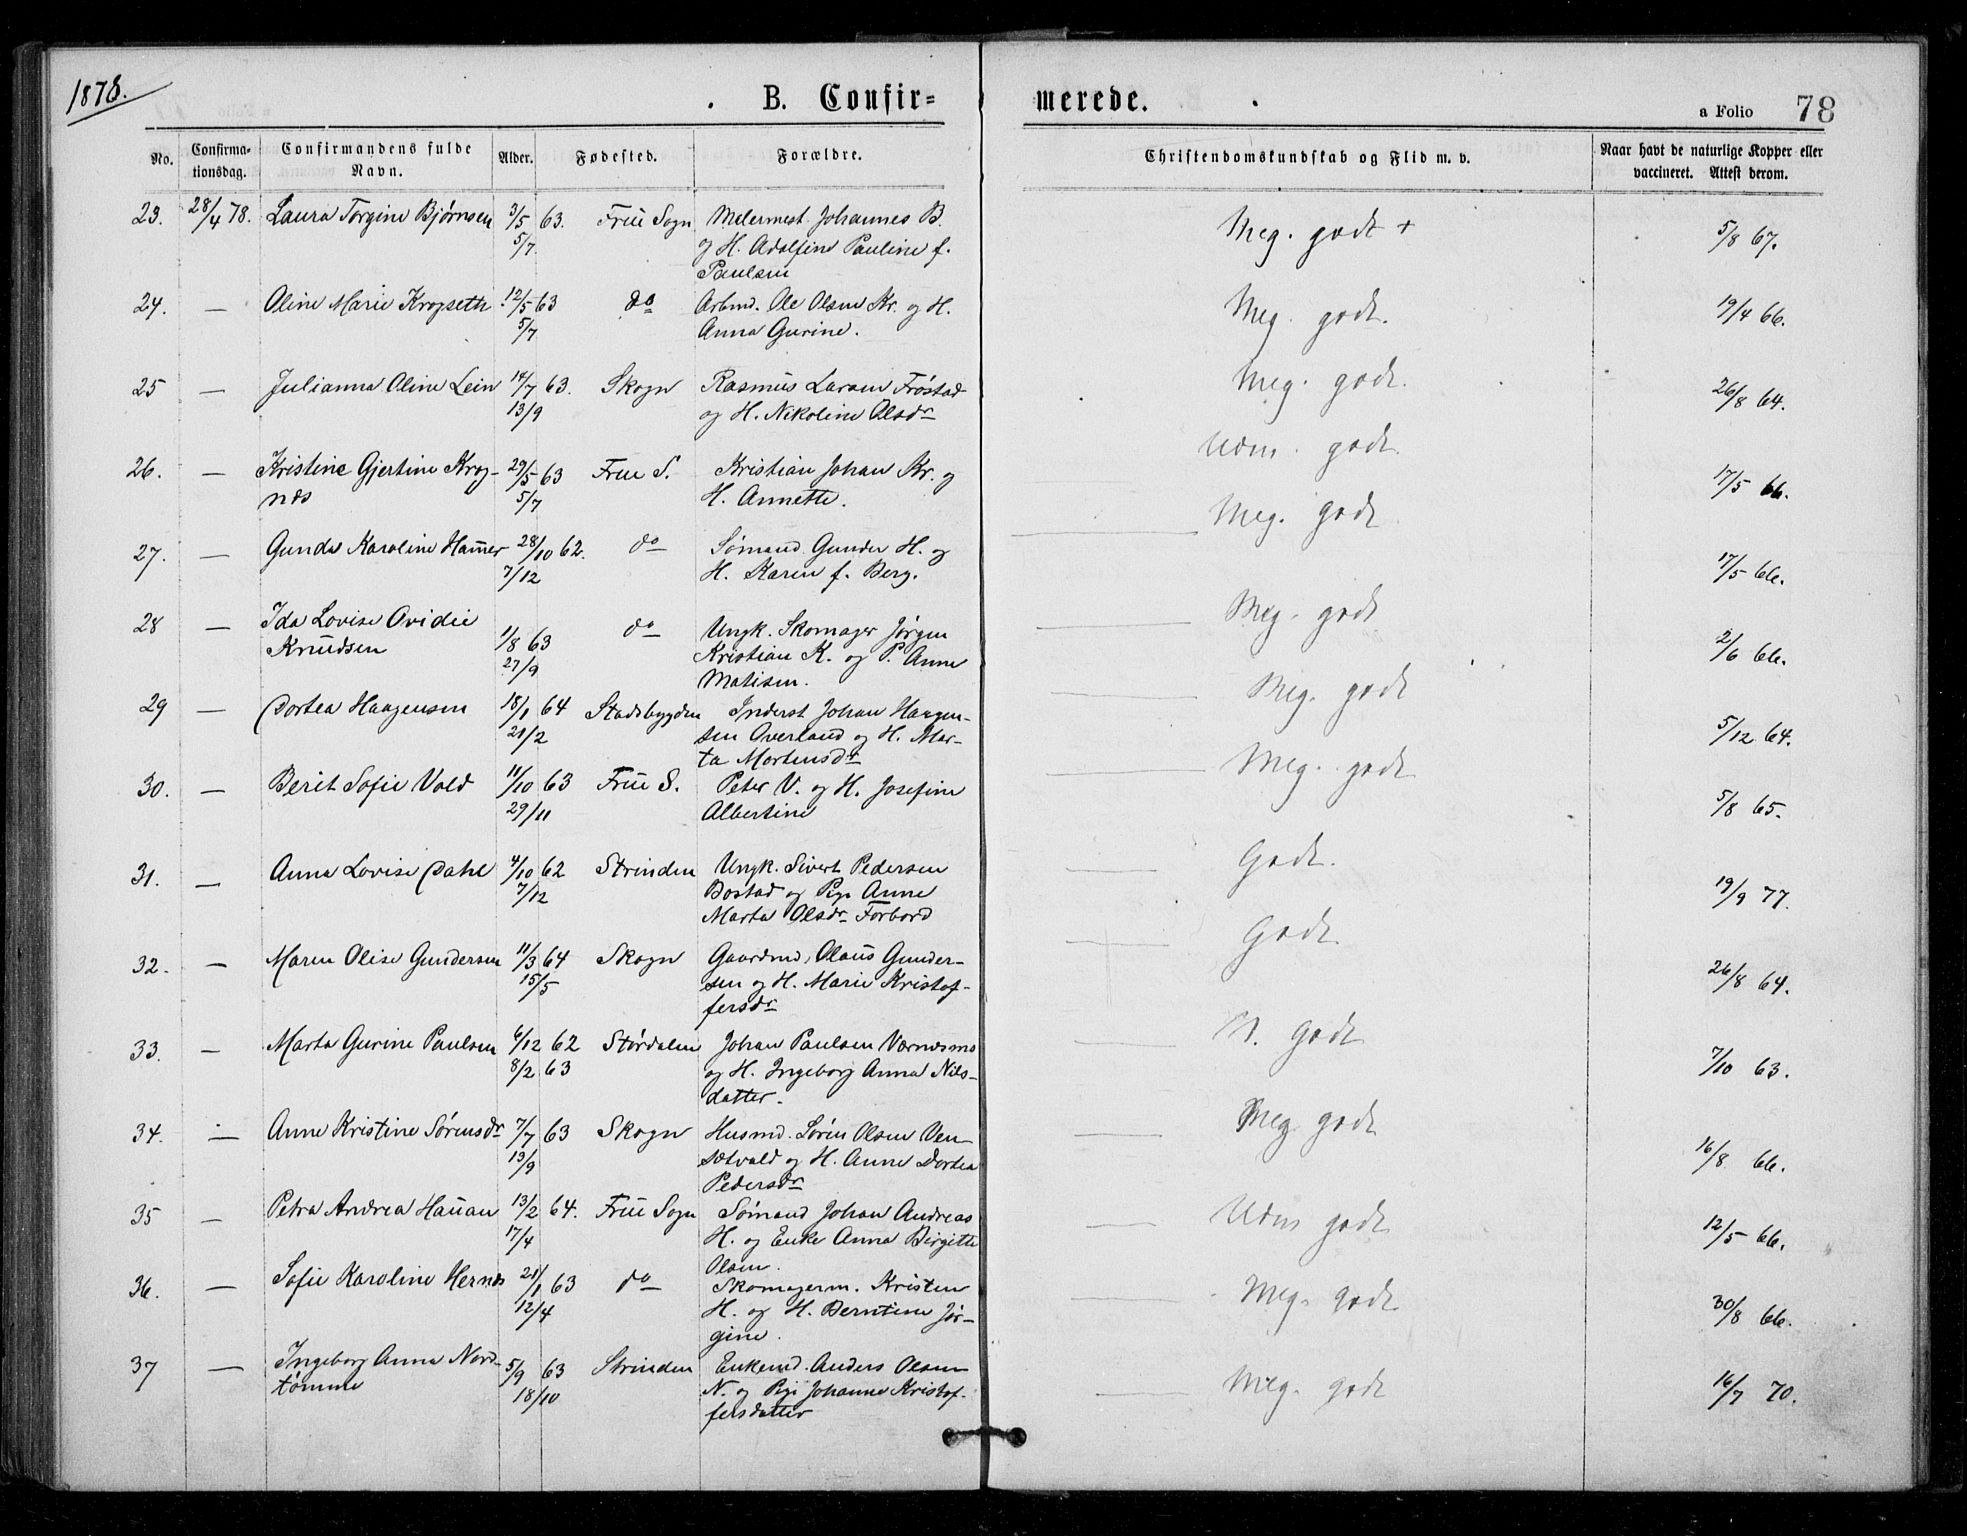 1878.
B. Confir-
merede.
a Folio 78
No.
Confirma-
tionsdag.
Confirmandens fulde
Navn.
Alder.
Fødested.
Forældre.
Christendomskundskab og Flid m. v.
Naar havt de naturlige Kopper eller
vaccineret. Attest derom.
23. 28/4 78. Laura Torgine Bjørnsen 3/5 63. Frue Sogn Melermest. Johannes B. Meg. godt + 5/8 67.
5/7. og H. Adolfine Pauline f.
Paulsen
24. — Oline Marie Krogseth 12/5 63 do Arbmd. Ole Olsen Kr. og H. Meg. godt. 19/4 66.
5/7 Anna Gurine.
25 — Julianna Oline Lein 14/7 63. Skogn Rasmus Larsen Fröstad Meg. godt. 26/8 64.
13/9 og H. Nikoline Olsdr
26. — Kristine Gjertine Krog- 29/5 63 Frue S. Kristian Johan Kr. og Udm. godt. 17/5 66.
næs 5/7 H. Annette.
27. — Gunda Karoline Ham̄er 28/10 62. do Sømand Gunder H. og Meg. godt 17/5 66.
7/12 H. Karen f. Berg.
28 — Ida Lovise Ovidie
Knudsen 1/8 63 do Ungk. Skomager Jørgen Meg. godt 2/6 66.
27/9 Kristian K. og P. Anne
Matisen.
29 — Dortea Haagensen 18/1 64 Stadsbygden Inderst Johan Haagen- Meg. godt 5/12 64.
21/2 sen Overland og H. Mar-
ta Mortensdr
30. — Berit Sofie Vold 11/10 63 Frue S. Peter V. og H. Josefine Meg. godt 5/8 65.
29/11 Albertine
31. — Anna Lovise Dahl 4/10 62 Strinden Ungk. Sivert Pedersen Godt. 19/9 77.
7/12 Bostad og Pige Anne
Marta Olsdr Forbord
32. — Maren Olise Gundersen 11/3 64 Skogn Gaardmd. Olaus Gunder- Godt. 26/8 64.
15/5 sen og H. Marie Kristof-
fersdr
33. — Marta Gurine Paulsen 6/12 62 Størdalen Johan Paulsen Værnæsmo N. Godt 7/10 63.
8/2 63 og H. Ingeborg Anna Nils-
datter.
34. — Anne Kristine Sörensdr 7/7 63 Skogn Husmd. Sören Olsen Ven- Meg godt 16/8 66.
13/9 sætvald og H. Anne Dortea
Pedersdr
35 — Petra Andrea Hauan 13/2 64. Frue Sogn Sømand Johan Andreas Udm godt 12/5 66.
17/4 H. og Enke Anna Birgitte
Olsen.
36. — Sofie Karoline Hernæs 21/1 63 do Skomagerm. Kristen Meg. godt 30/8 66.
12/4 H. og H. Berntine Jør-
gine.
37 — Ingeborg Anna Nord- 5/9 63 Strinden Enkemd. Anders Olsen Meg. godt 16/7 70.
tømme 18/10 N. og Pige Johanne Kristof-
fersdatter